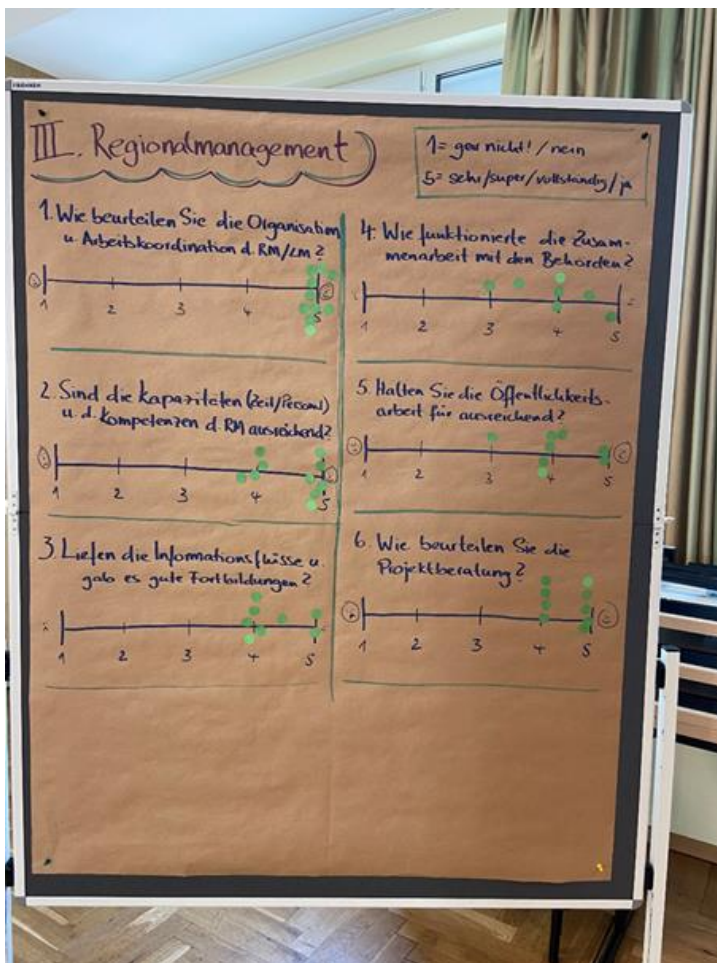 III. Regionalmanagement
1 = gar nicht! / nein
5 = sehr/super/vollständig/ja
1. Wie beurteilen Sie die Organisation
u. Arbeitskoordination d. RM/LM?
1 2 3 4 5
2. Sind die Kapazitäten (Zeit/Personal)
u. d. Kompetenzen d. RM ausreichend?
1 2 3 4 5
3. Liefen die Informationsflüsse u.
gab es gute Fortbildungen?
1 2 3 4 5
4. Wie funktionierte die Zusam-
menarbeit mit den Behörden?
1 2 3 4 5
5. Halten Sie die Öffentlichkeits-
arbeit für ausreichend?
1 2 3 4 5
6. Wie beurteilen Sie die
Projektberatung?
1 2 3 4 5